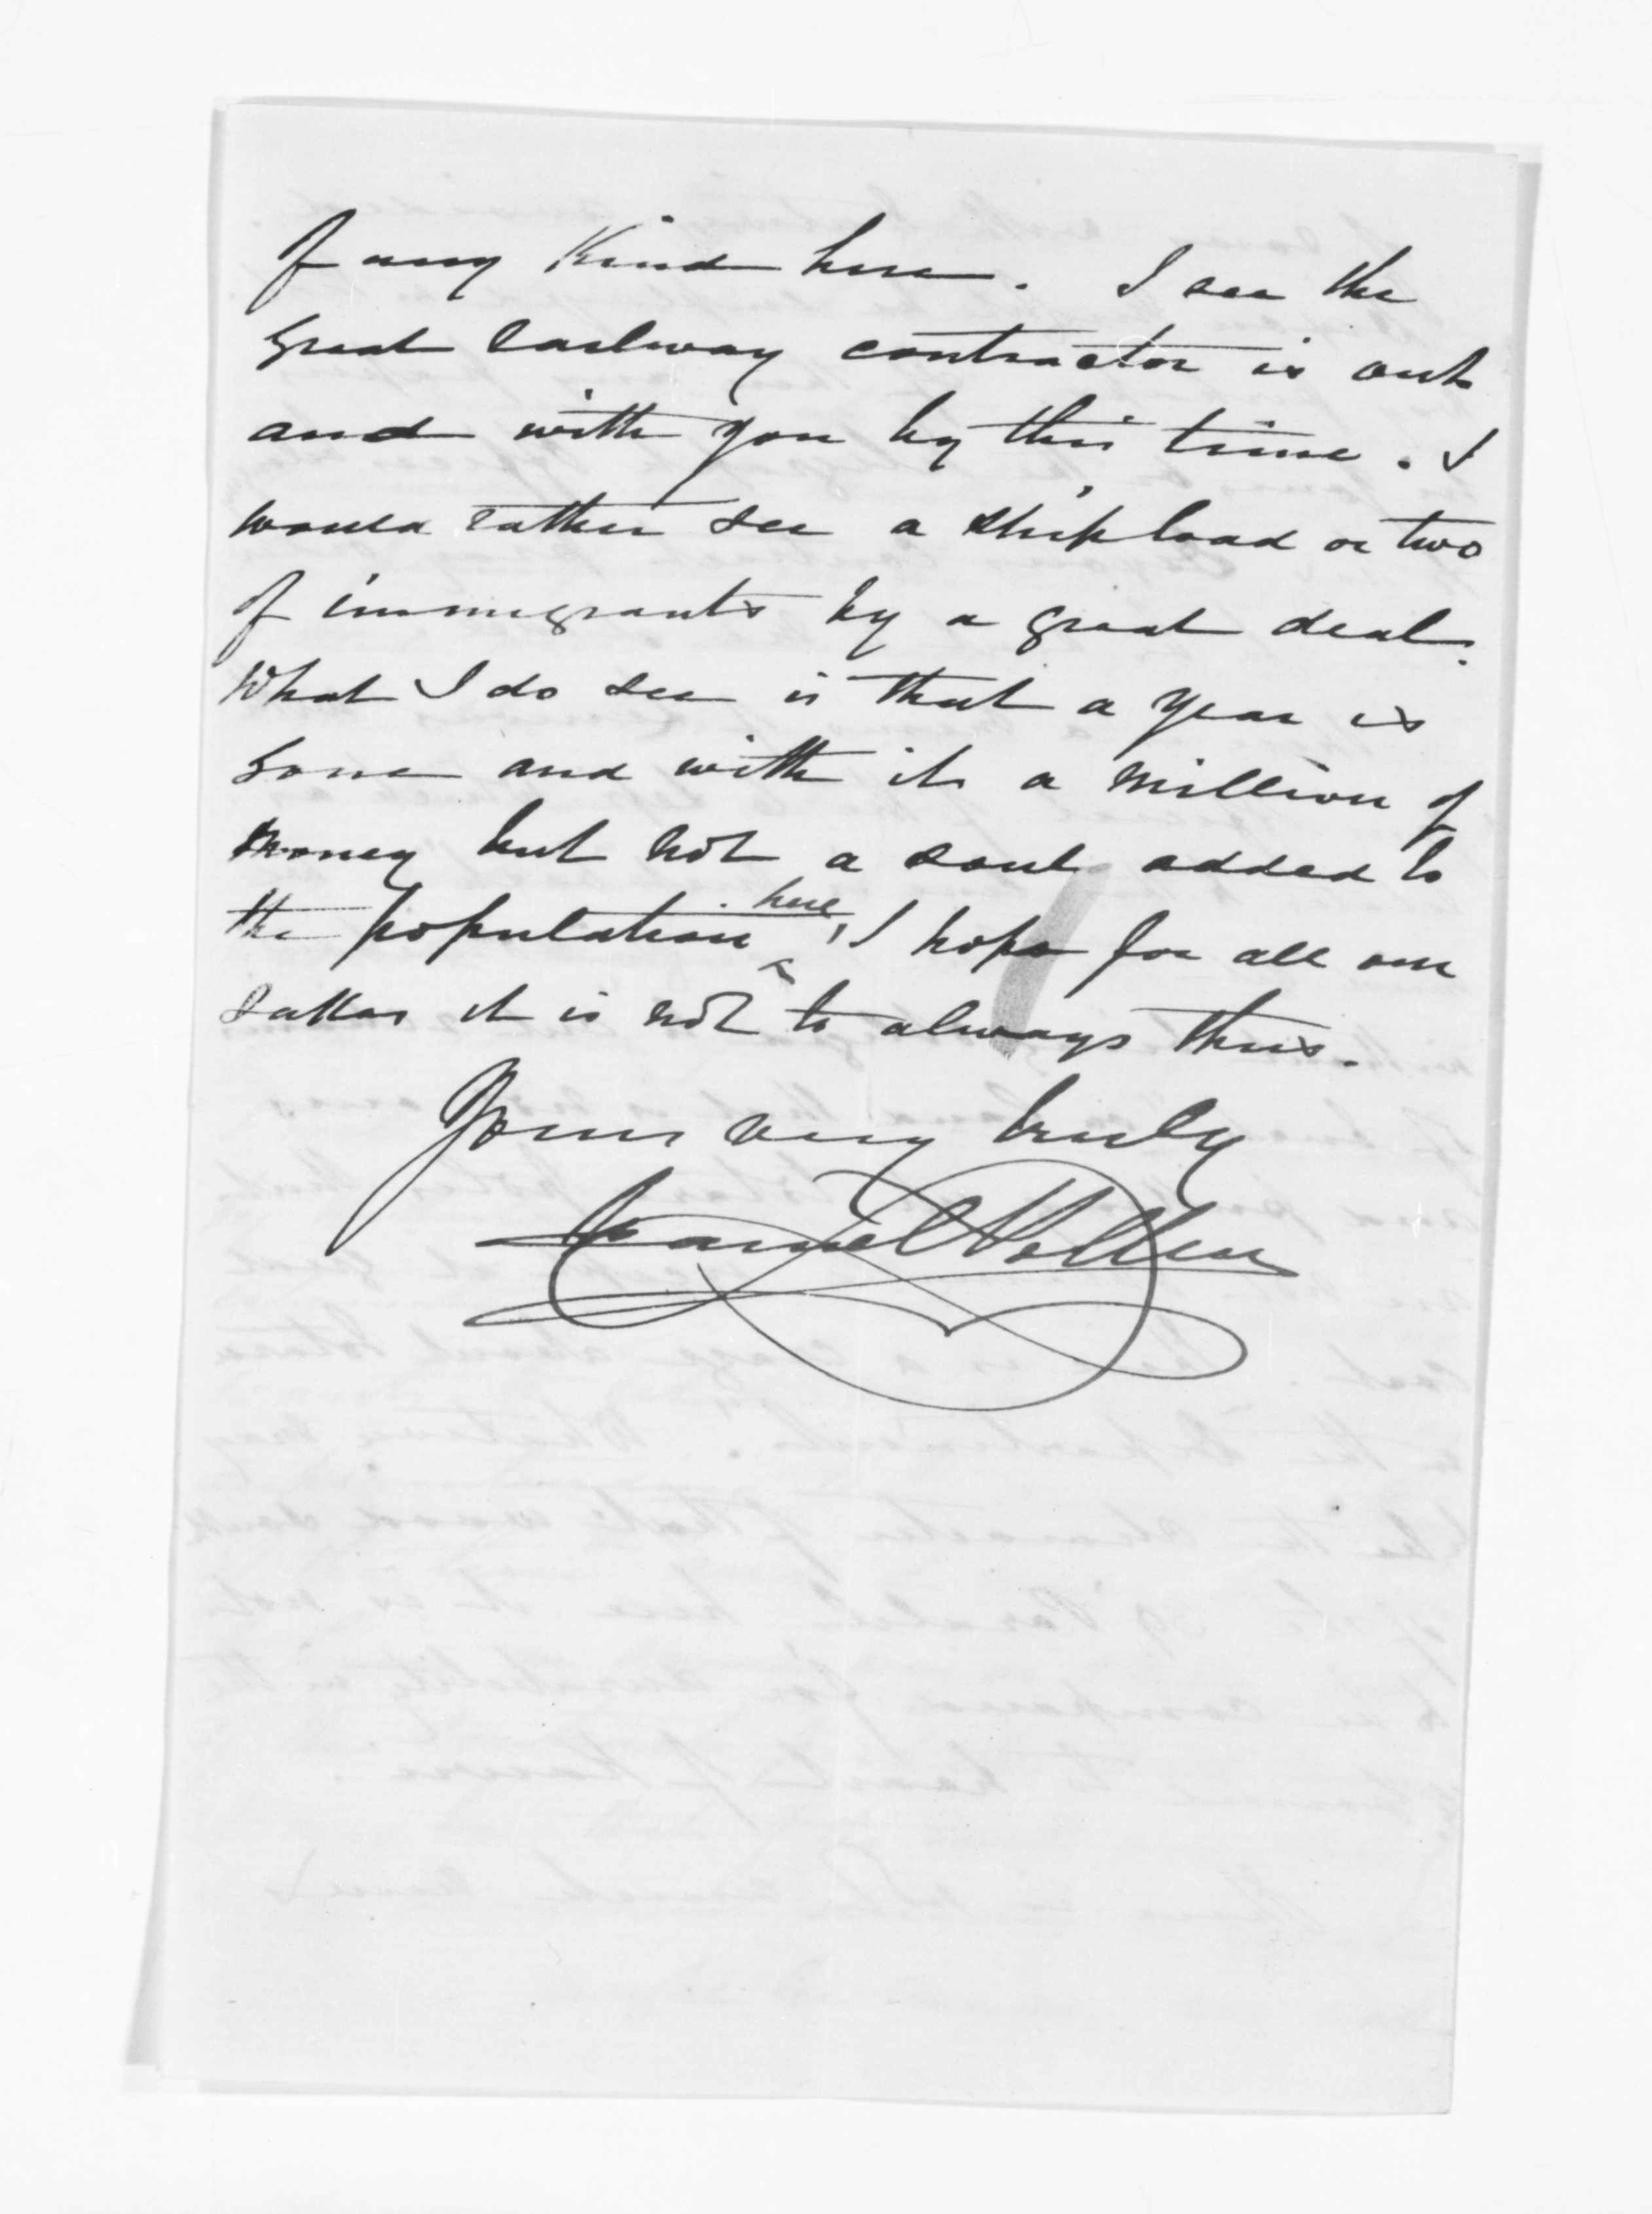 of any Kind here. I see the
great railway contractor is out
and with you by this time. I
would rather see a shipload or two
of immigrants by a great deal.
What I do see is that a year is
gone and with it a million of
money but not a soul added to
the population here, I hope for all our
sakes it is not to always thus.
Yours very truly
Daniel Pollen